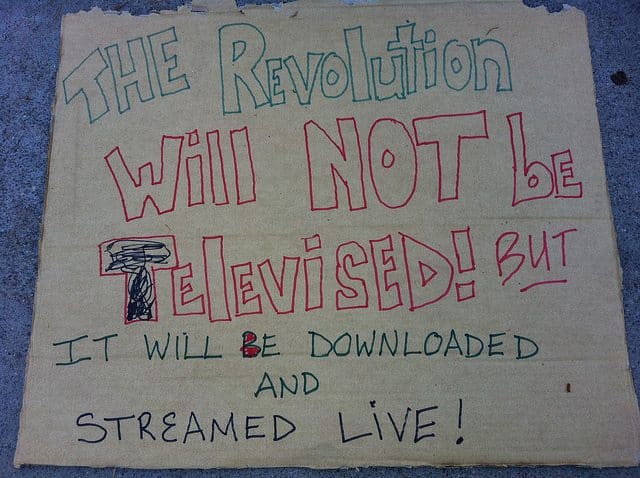 THE Revolution
Will NOT be
Televised! BUT
IT WILL BE DOWNLOADED
AND
STREAMED LIVE!